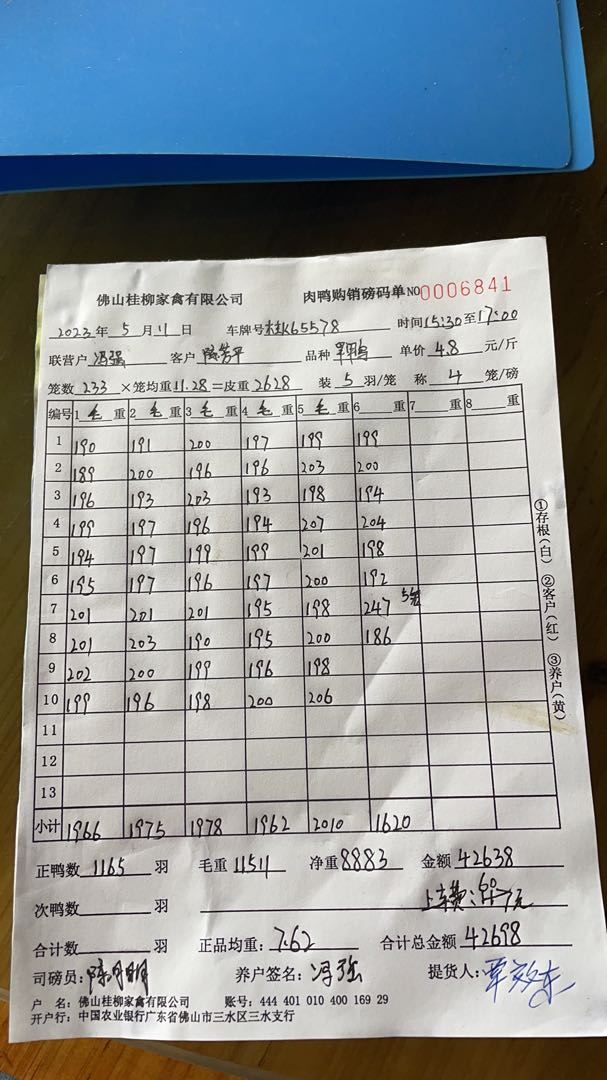 佛山桂柳家禽有限公司 肉鸭购销磅码单 NO 0006841
2023年 5 月 11 日 车牌号 桂K65578 时间 15:30 至 17:00
联营户 冯强 客户 陈芳平 品种 单价 4.8 元/斤
笼数 233 ×笼均重 11.28 =皮重 2628 装 5 羽/笼 称 4 笼/磅
编号 1 毛 重 2 毛 重 3 毛 重 4 毛 重 5 毛 重 6 重 7 重 8 重
1 190 191 200 197 199 199
2 189 200 196 196 203 200
3 196 193 203 193 198 194
4 199 197 196 194 207 204
5 194 197 199 199 201 198
6 195 197 196 197 200 192
7 201 201 201 195 198 247 5笼
8 201 203 190 195 200 186
9 202 200 199 196 198
10 199 196 198 200 206
11
12
13
小计 1966 1975 1978 1962 2010 1620
①存根(白) ②客户(红) ③养户(黄)
正鸭数 1165 羽 毛重 11511 净重 8883 金额 42638
次鸭数 羽 上车费:60元
合计数 羽 正品均重: 7.62 合计总金额 42698
司磅员: 陈月明 养户签名: 冯强 提货人:
户 名: 佛山桂柳家禽有限公司 账号: 444 401 010 400 169 29
开户行: 中国农业银行广东省佛山市三水区三水支行